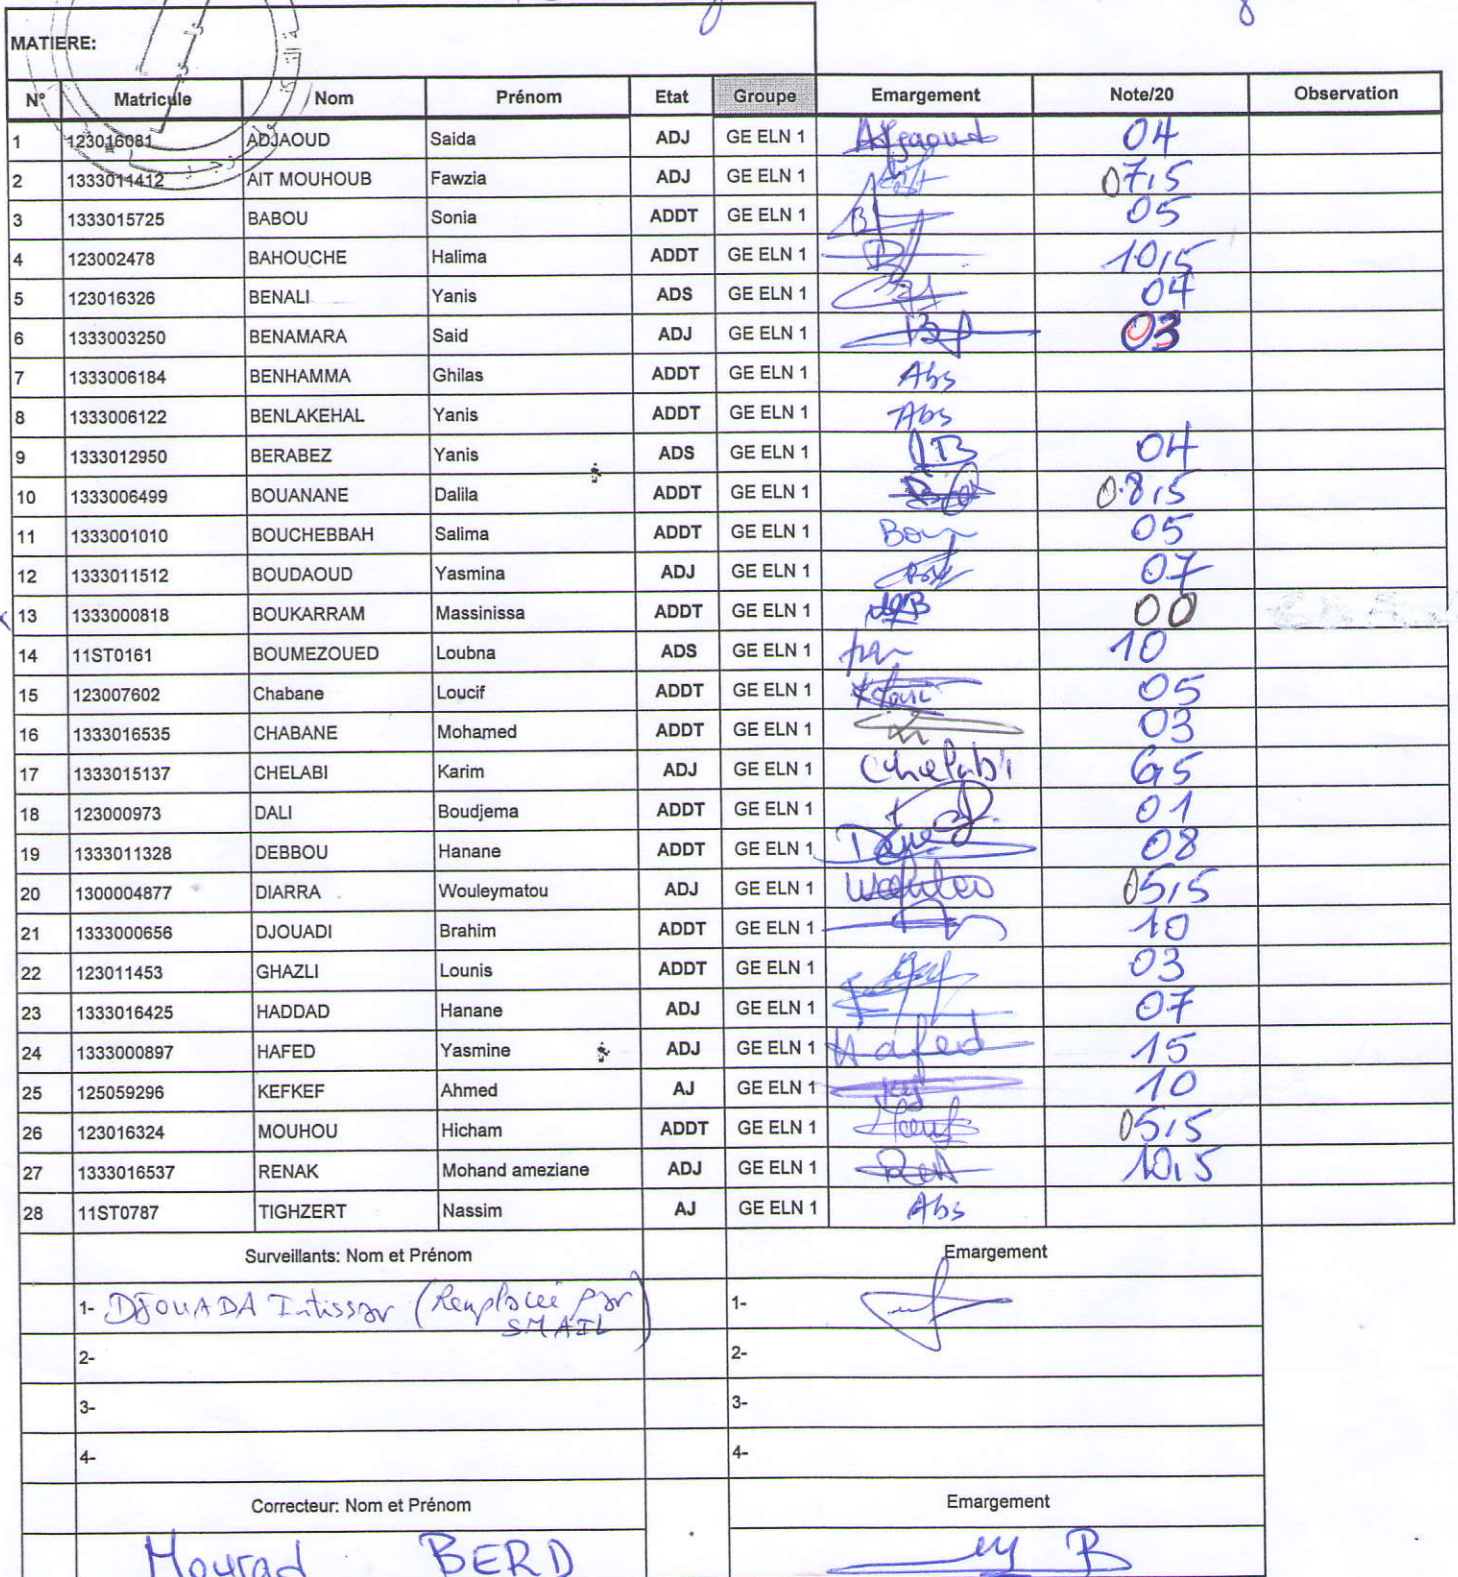 MATIERE:
N° Matricule Nom Prénom Etat Groupe Emargement Note/20 Observation
1 123016081 ADJAOUD Saida ADJ GE ELN 1 Adjaoud 04
2 1333011412 AIT MOUHOUB Fawzia ADJ GE ELN 1 07,5
3 1333015725 BABOU Sonia ADDT GE ELN 1 05
4 123002478 BAHOUCHE Halima ADDT GE ELN 1 10,5
5 123016326 BENALI Yanis ADS GE ELN 1 04
6 1333003250 BENAMARA Said ADJ GE ELN 1 03
7 1333006184 BENHAMMA Ghilas ADDT GE ELN 1 Abs
8 1333006122 BENLAKEHAL Yanis ADDT GE ELN 1 Abs
9 1333012950 BERABEZ Yanis ADS GE ELN 1 04
10 1333006499 BOUANANE Dalila ADDT GE ELN 1 08,5
11 1333001010 BOUCHEBBAH Salima ADDT GE ELN 1 05
12 1333011512 BOUDAOUD Yasmina ADJ GE ELN 1 07
13 1333000818 BOUKARRAM Massinissa ADDT GE ELN 1 00
14 11ST0161 BOUMEZOUED Loubna ADS GE ELN 1 10
15 123007602 Chabane Loucif ADDT GE ELN 1 05
16 1333016535 CHABANE Mohamed ADDT GE ELN 1 03
17 1333015137 CHELABI Karim ADJ GE ELN 1 Chelabi
18 123000973 DALI Boudjema ADDT GE ELN 1 01
19 1333011328 DEBBOU Hanane ADDT GE ELN 1 08
20 1300004877 DIARRA Wouleymatou ADJ GE ELN 1 05,5
21 1333000656 DJOUADI Brahim ADDT GE ELN 1 10
22 123011453 GHAZLI Lounis ADDT GE ELN 1 03
23 1333016425 HADDAD Hanane ADJ GE ELN 1 07
24 1333000897 HAFED Yasmine ADJ GE ELN 1 Hafed 15
25 125059296 KEFKEF Ahmed AJ GE ELN 1 10
26 123016324 MOUHOU Hicham ADDT GE ELN 1 05,5
27 1333016537 RENAK Mohand ameziane ADJ GE ELN 1 10,5
28 11ST0787 TIGHZERT Nassim AJ GE ELN 1 Abs
Surveillants: Nom et Prénom Emargement
1- DJOUADA Intissar (Remplacée par SMAIL) 1-
2- 2-
3- 3-
4- 4-
Correcteur: Nom et Prénom Emargement
Mourad BERD